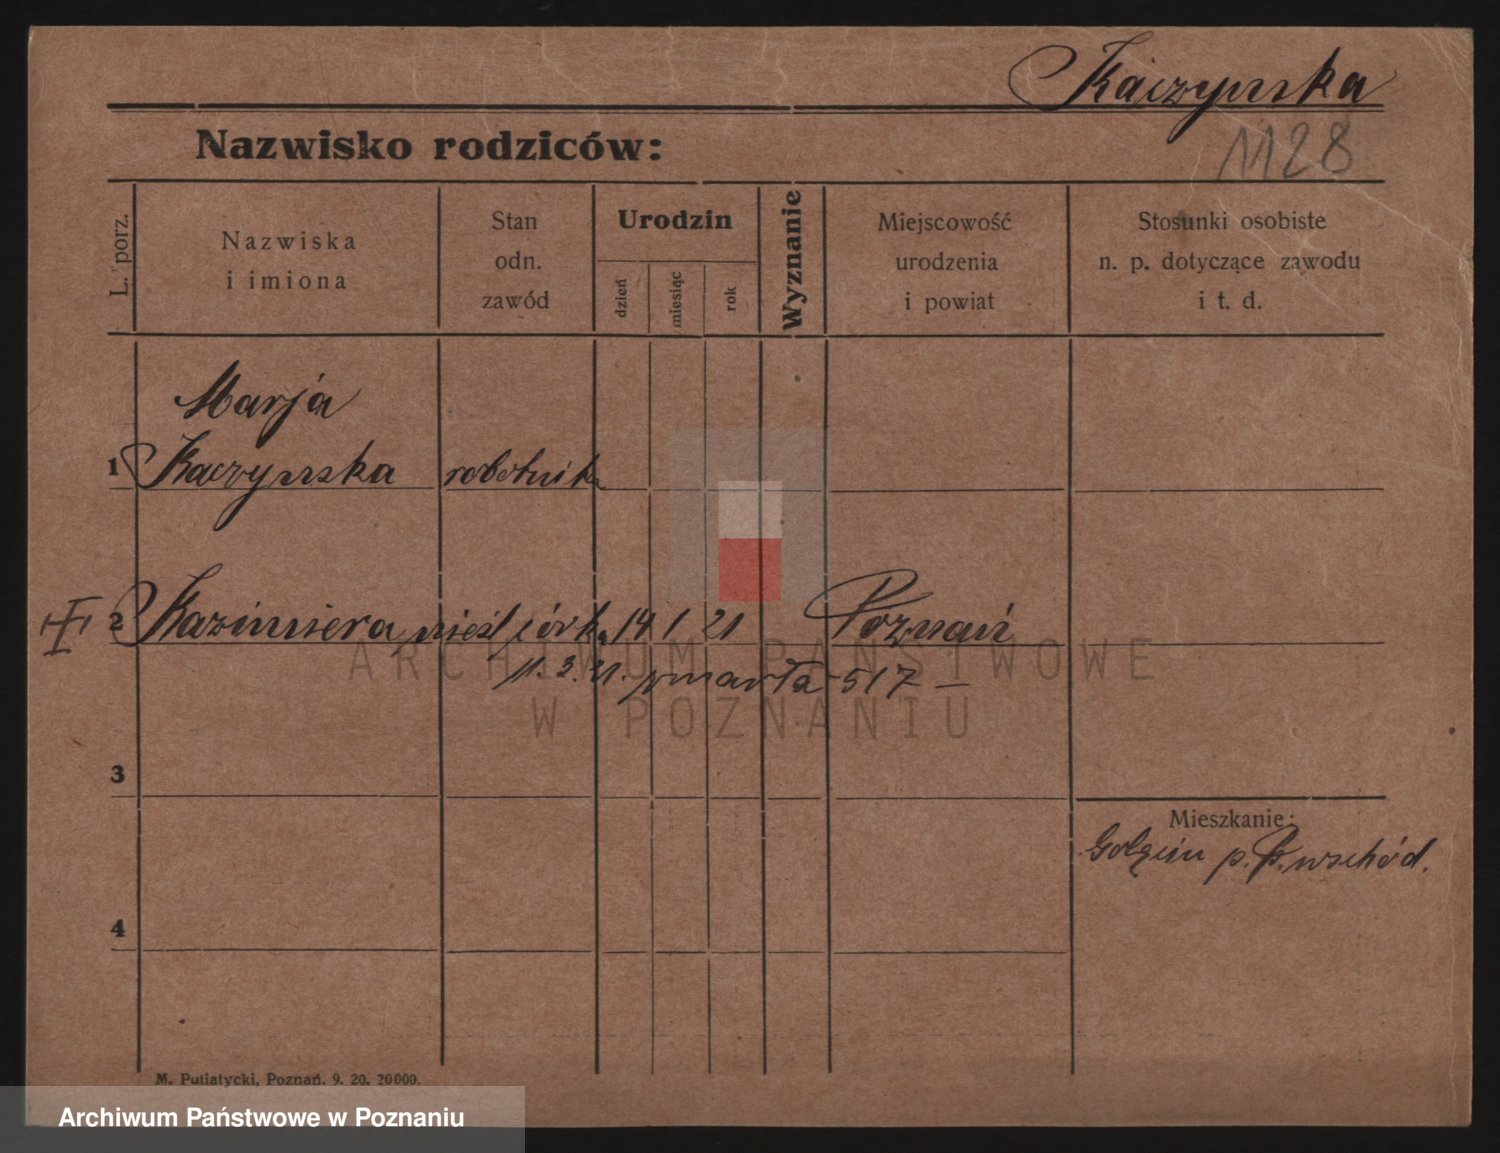 Kaczynska
Nazwisko rodziców:
1128
L. porz.
Nazwiska
i imiona
Stan
odn.
zawód
Urodzin
dzień
miesiąc
rok
Wyznanie
Miejscowość
urodzenia
i powiat
Stosunki osobiste
n. p. dotyczące zawodu
i t. d.
Marja
1 Kaczynska robotnika
2 Kazimiera nieśl córka 14 1 21 Poznań
11. 3. 21. zmarła 517 —
3
Mieszkanie:
Golęcin p. P. wschód.
4
M. Putiatycki, Poznań. 9. 20. 20000.
ARCHIWUM PAŃSTWOWE
W POZNANIU
Archiwum Państwowe w Poznaniu